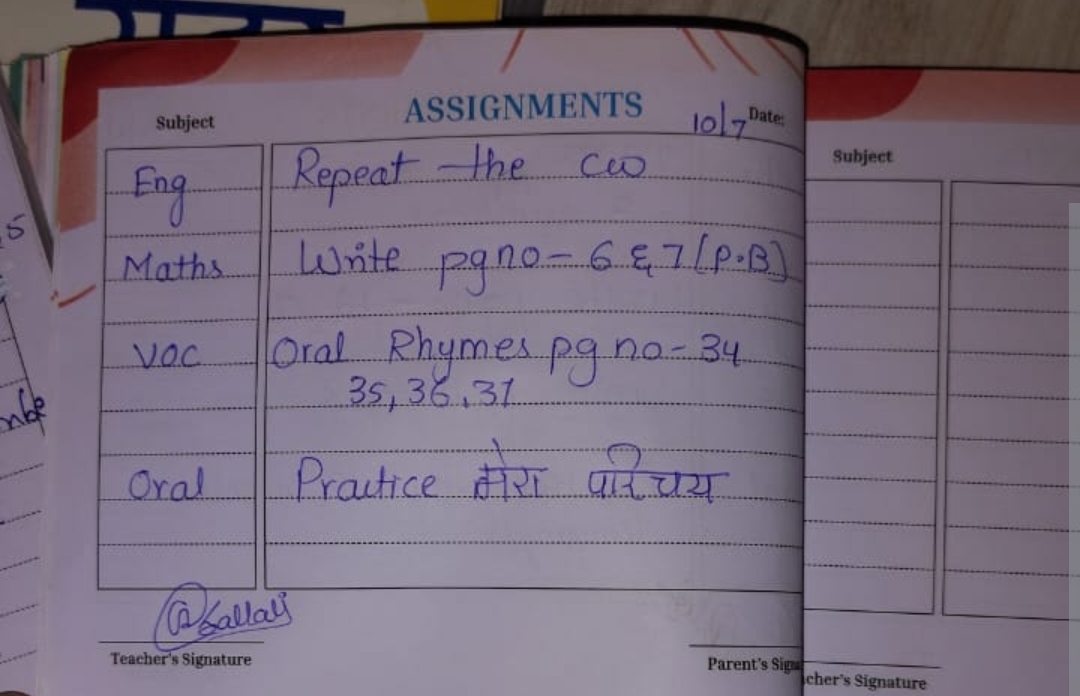 Subject
ASSIGNMENTS
10/7 Date:
Eng
Repeat the cw
Maths
Write pg no - 6 & 7 (P.B)
VOC
Oral Rhymes pg no - 34
35, 36, 37
Oral
Practice मेरा परिचय
Teacher's Signature
Parent's
Subject
Signature